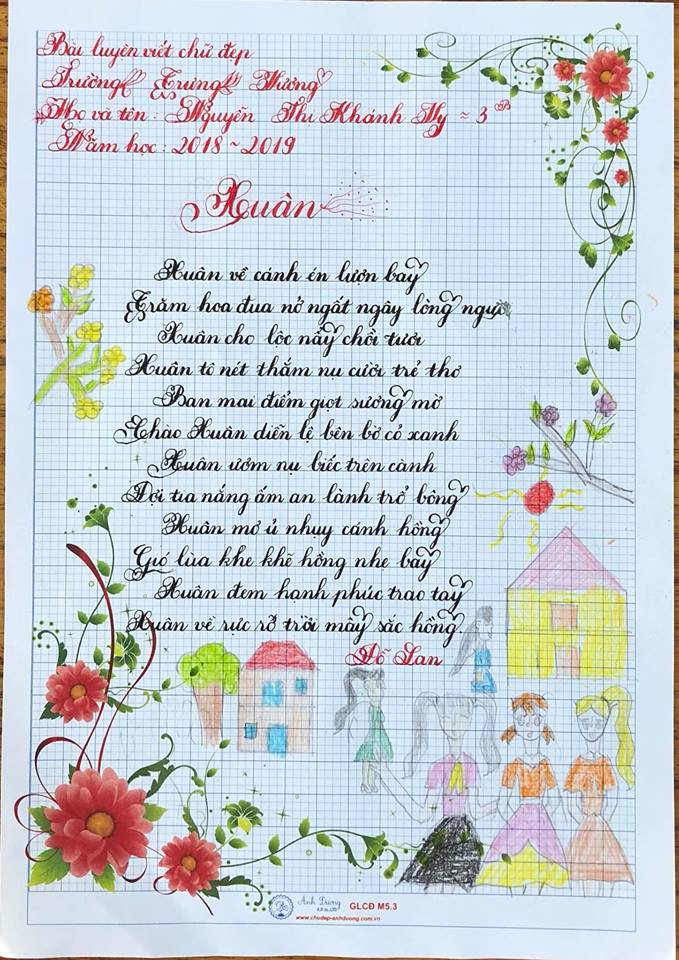 Bài luyện viết chữ đẹp
Trường Trưng Vương
Họ và tên : Nguyễn Thụ Khánh Vy ≈ 3 B
Năm học : 2018 ~ 2019
Xuân
Xuân về cánh én lượn bay
Trăm hoa đua nở ngất ngây lòng người
Xuân cho lộc nảy chồi tươi
Xuân tô nét thắm nụ cười trẻ thơ
Ban mai điểm giọt sương mờ
Chào Xuân diễn lệ bên bờ cỏ xanh
Xuân ươm nụ biếc trên cành
Đợi tia nắng ấm an lành trổ bông
Xuân mơ ủ nhụy cánh hồng
Gió lùa khe khẽ hồng nhẹ bay
Xuân đem hạnh phúc trao tay
Xuân về rực rỡ trời mây sắc hồng
Đỗ Lan
Anh Dương
GLCĐ M5.3
www.chudep-anhduong.com.vn